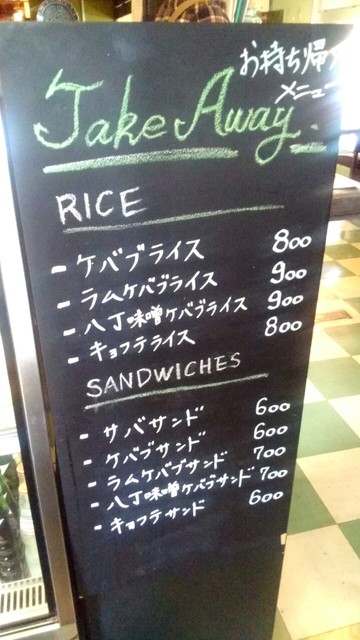 お持ち帰り
メニュー
Take Away
RICE
ケバブライス 800
ラムケバブライス 900
八丁味噌ケバブライス 900
キョフテライス 800
SANDWICHES
サバサンド 600
ケバブサンド 600
ラムケバブサンド 700
八丁味噌ケバブサンド 700
キョフテサンド 600